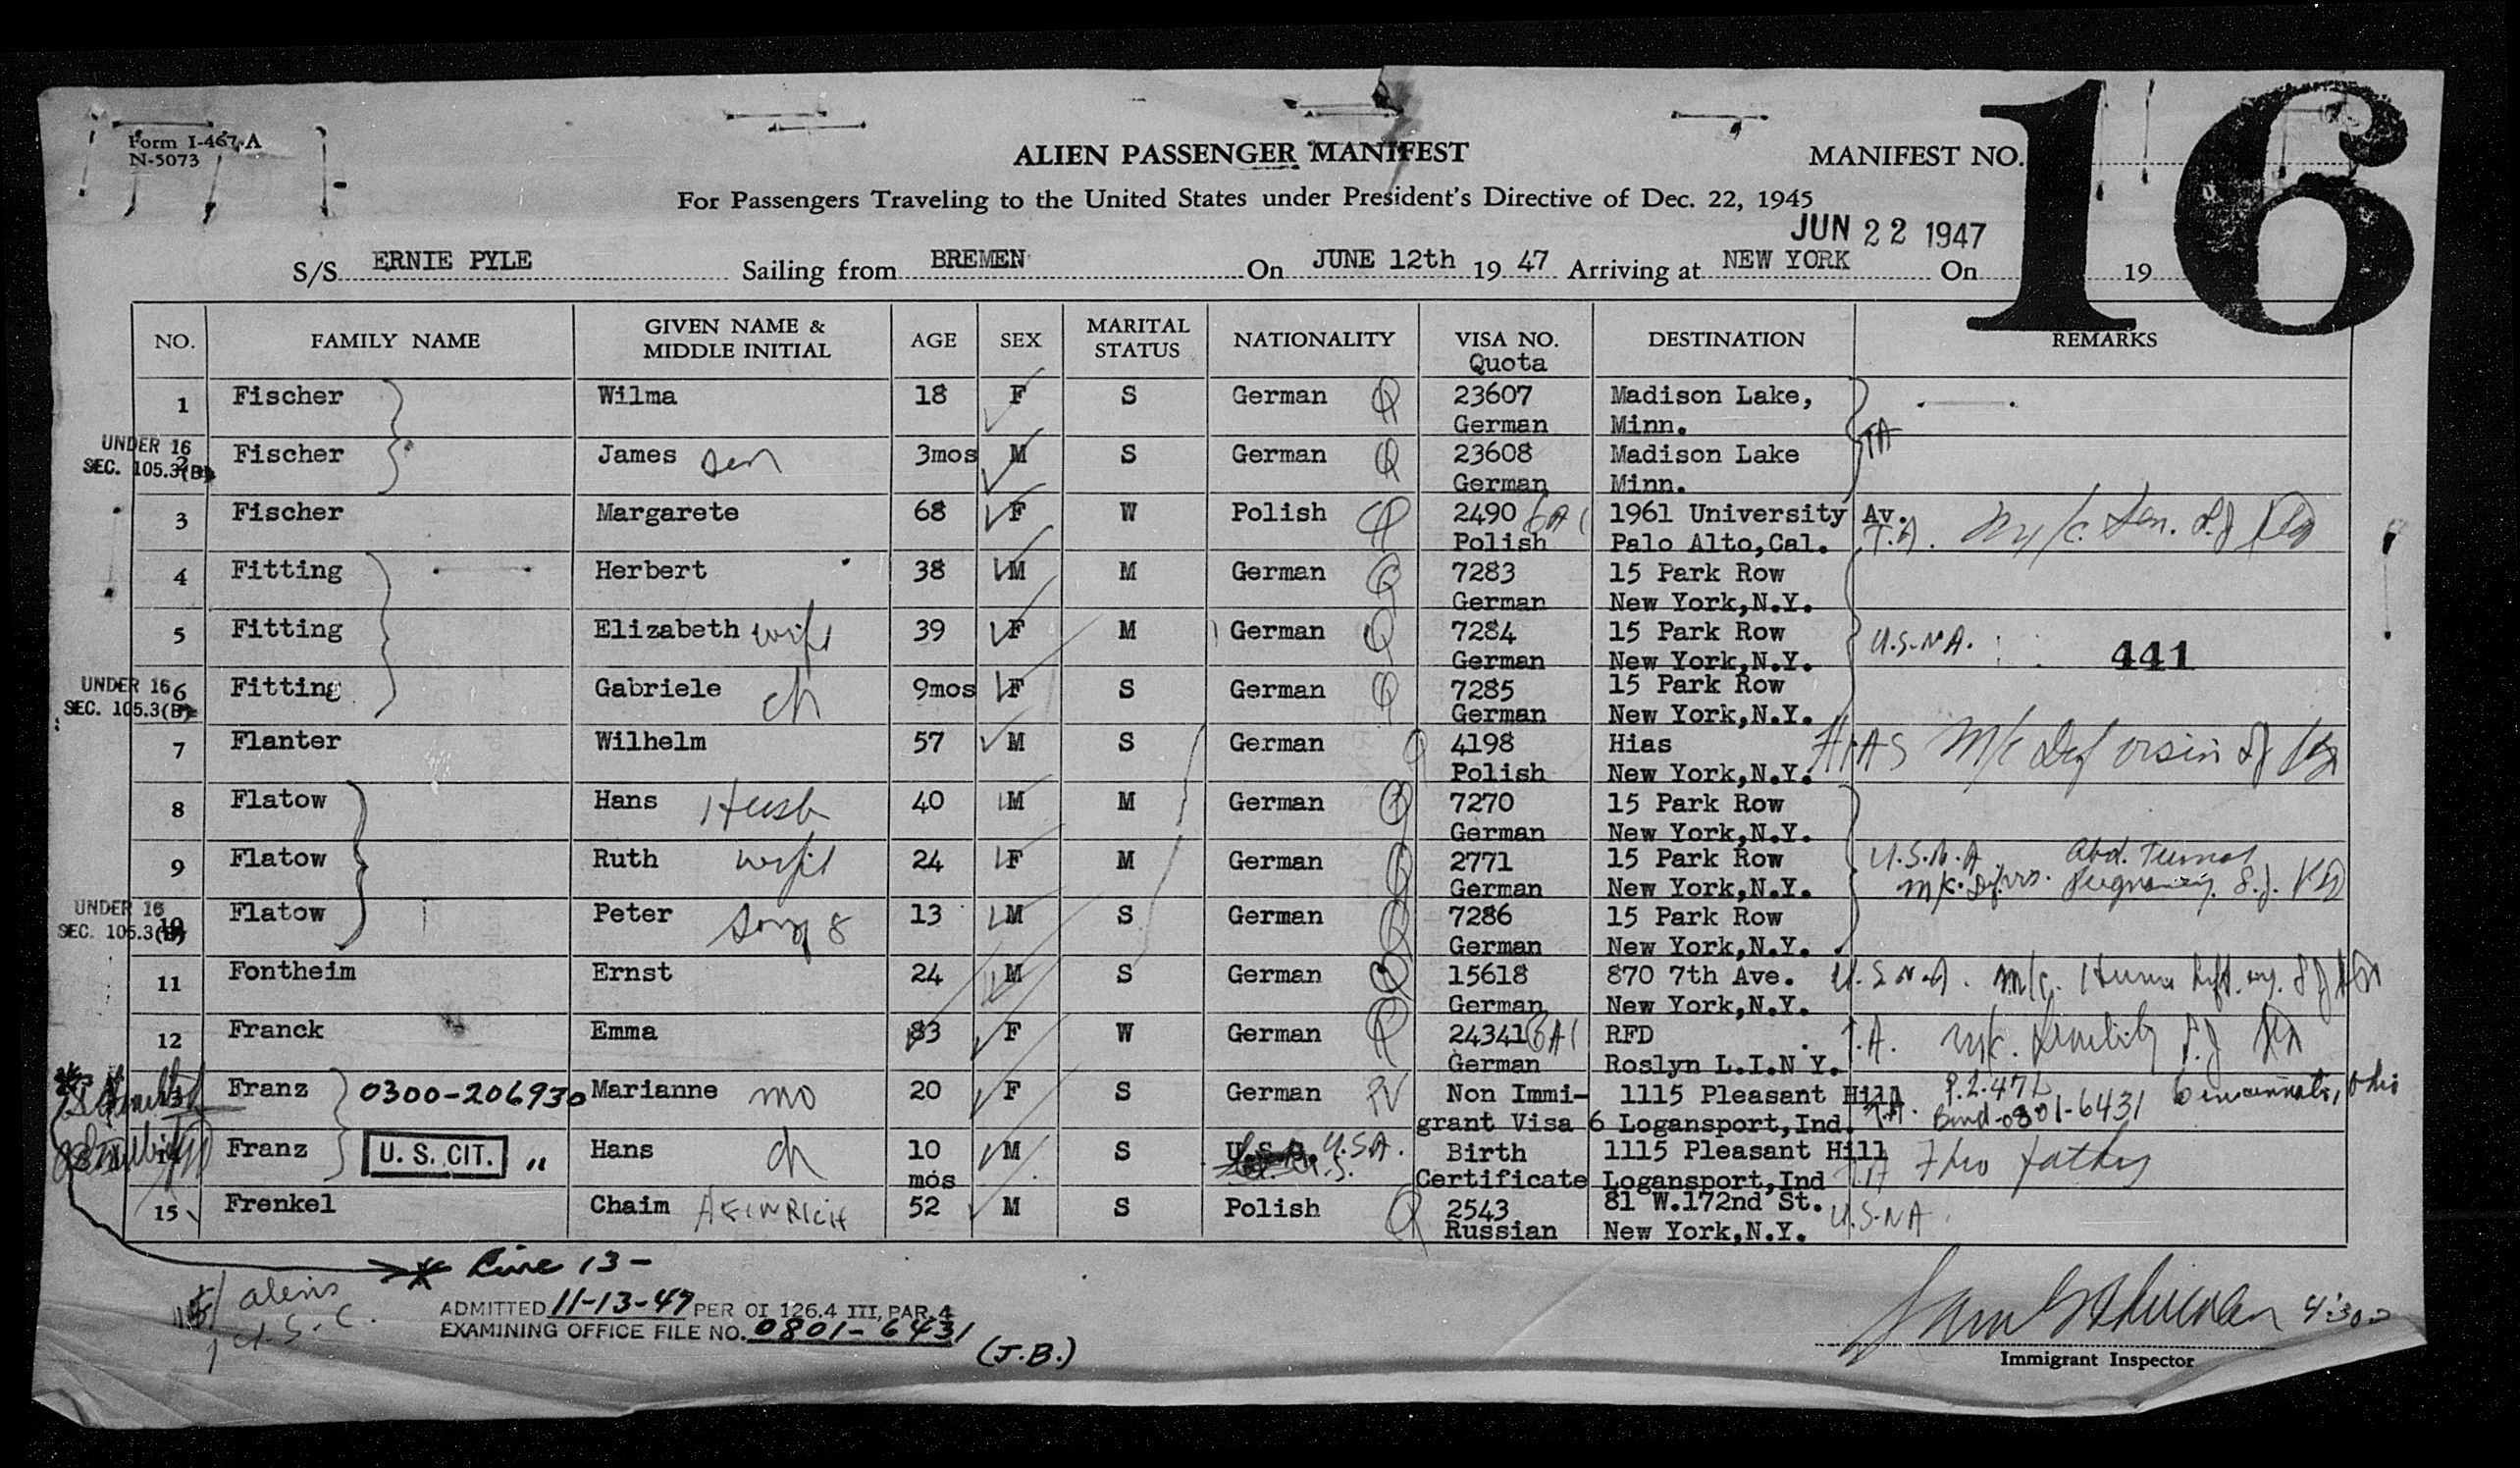 Form I-467-A
N-5073
ALIEN PASSENGER MANIFEST
MANIFEST NO. 16
For Passengers Traveling to the United States under President's Directive of Dec. 22, 1945
JUN 22 1947
S/S ERNIE PYLE Sailing from BREMEN On JUNE 12th 19 47 Arriving at NEW YORK On 19
NO. FAMILY NAME GIVEN NAME & MIDDLE INITIAL AGE SEX MARITAL STATUS NATIONALITY VISA NO. Quota DESTINATION REMARKS
1 Fischer Wilma 18 F S German Q 23607 Madison Lake,
German Minn.
TA
UNDER 16
SEC. 105.3(B)
2 Fischer James son 3mos M S German Q 23608 Madison Lake
German Minn.
3 Fischer Margarete 68 W F Polish Q 2490 6A( 1961 University Av.
Polish Palo Alto,Cal. T.A. M/c. Sen.
4 Fitting Herbert 38 M M German Q 7283 15 Park Row
German New York,N.Y.
5 Fitting Elizabeth wife 39 F M German Q 7284 15 Park Row U.S.N.A. 441
German New York,N.Y.
UNDER 16
SEC. 105.3(B)
6 Fitting Gabriele ch 9mos F S German Q 7285 15 Park Row
German New York,N.Y.
7 Flanter Wilhelm 57 M S German Q 4198 Hias HIAS M/c
Polish New York,N.Y.
8 Flatow Hans Husb 40 M M German Q 7270 15 Park Row
German New York,N.Y.
9 Flatow Ruth wife 24 F M German Q 2771 15 Park Row U.S.N.A Abd. Tumor
German New York,N.Y. M/c. Pregnancy.
UNDER 16
SEC. 105.3(B)
10 Flatow Peter son 8 13 M S German Q 7286 15 Park Row
German New York,N.Y.
11 Fontheim Ernst 24 M S German Q 15618 870 7th Ave. U.S.N.A. M/c.
German New York,N.Y.
12 Franck Emma 83 F W German Q 24341 6A( RFD T.A. M/c. Senility
German Roslyn L.I.N Y.
13 Franz 0300-206930 Marianne mo 20 F S German RV Non Immi- 1115 Pleasant Hill P.L. 471 Cincinnati, Ohio
grant Visa 6 Logansport,Ind. T.A. Bond-0801-6431
14 Franz U. S. CIT. " Hans ch 10 M S U.S.A. Birth 1115 Pleasant Hill T.A Theo father
mos Certificate Logansport,Ind
15 Frenkel Chaim HEINRICH 52 M S Polish Q 2543 81 W.172nd St. U.S.N A
Russian New York,N.Y.
* Line 13-
aliens
1 U.S.C.
ADMITTED 11-13-47 PER OI 126.4 III, PAR. 4
EXAMINING OFFICE FILE NO. 0801-6431
(J.B.)
4:30
Immigrant Inspector